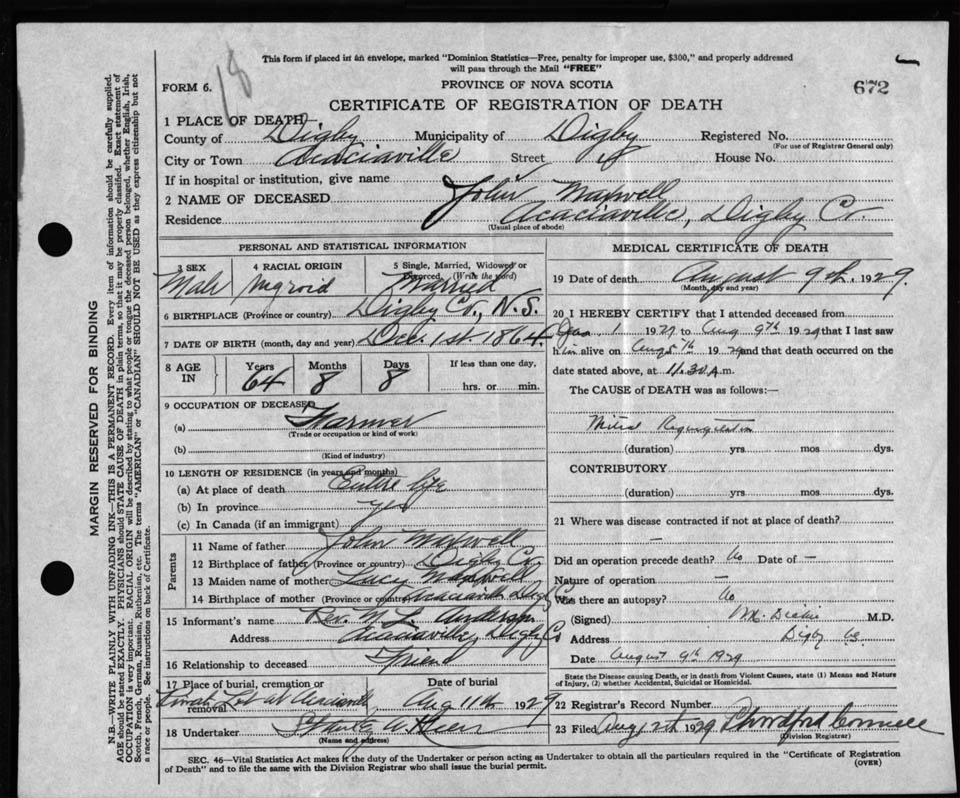 This form if placed in an envelope, marked "Dominion Statistics—Free, penalty for improper use, $300," and properly addressed
will pass through the Mail "FREE"
18
FORM 6.
PROVINCE OF NOVA SCOTIA
672
CERTIFICATE OF REGISTRATION OF DEATH
1 PLACE OF DEATH—
County of Digby Municipality of Digby Registered No.
(For use of Registrar General only)
City or Town Acaciaville Street House No.
If in hospital or institution, give name
2 NAME OF DECEASED John Maxwell
Residence Acaciaville, Digby Co.
(Usual place of abode)
PERSONAL AND STATISTICAL INFORMATION
3 SEX 4 RACIAL ORIGIN 5 Single, Married, Widowed or
Divorced, (Write the word)
Male Negroid Married
6 BIRTHPLACE (Province or country) Digby Co., N.S.
7 DATE OF BIRTH (month, day and year) Dec. 1st. 1864.
8 AGE IN Years Months Days If less than one day,
64 8 8 hrs. or min.
9 OCCUPATION OF DECEASED
(a) Farmer
(Trade or occupation or kind of work)
(b)
(Kind of industry)
10 LENGTH OF RESIDENCE (in years and months)
(a) At place of death Entire life
(b) In province yes
(c) In Canada (if an immigrant)
Parents
11 Name of father John Maxwell
12 Birthplace of father (Province or country) Digby Co.
13 Maiden name of mother Lucy Maxwell
14 Birthplace of mother (Province or country) Acaciaville Digby Co
15 Informant's name Rev. M. L. Anderson
Address Acaciaville, Digby Co
16 Relationship to deceased Friend
17 Place of burial, cremation or removal Date of burial
Lot at Acaciaville Aug 11th 1929
18 Undertaker
(Name and address)
MEDICAL CERTIFICATE OF DEATH
19 Date of death August 9th. 1929.
(Month, day and year)
20 I HEREBY CERTIFY that I attended deceased from
Jan. 1 1929 to Aug 9th 1929 that I last saw
him alive on Aug 1929 and that death occurred on
date stated above, at 11.30 A.m.
The CAUSE of DEATH was as follows:—
Mitral Regurgitation
(duration) yrs mos dys.
CONTRIBUTORY
(duration) yrs mos dys.
21 Where was disease contracted if not at place of death?
—
Did an operation precede death? No Date of —
Nature of operation —
Was there an autopsy? No
(Signed) Dickie M.D.
Address Digby N.S.
Date August 9th 1929
State the Disease causing Death, or in death from Violent Causes, state (1) Means and Nature
of Injury, (2) whether Accidental, Suicidal or Homicidal.
22 Registrar's Record Number
23 Filed Aug 1929
(Division Registrar)
SEC. 46—Vital Statistics Act makes it the duty of the Undertaker or person acting as Undertaker to obtain all the particulars required in the "Certificate of Registration
of Death" and to file the same with the Division Registrar who shall issue the burial permit.
(OVER)
MARGIN RESERVED FOR BINDING
N.B.—WRITE PLAINLY WITH UNFADING INK—THIS IS A PERMANENT RECORD. Every item of information should be carefully supplied.
AGE should be stated EXACTLY. PHYSICIANS should STATE CAUSE OF DEATH in plain terms, so that it may be properly classified. Exact statement of
OCCUPATION is very important. RACIAL ORIGIN will be described by stating to what people or tongue the deceased person belonged, whether English, Irish,
Scotch, French, German, Russian, Ruthenian, etc. The terms "AMERICAN" or "CANADIAN" SHOULD NOT BE USED as they express citizenship but not
a race or people. See instructions on back of Certificate.